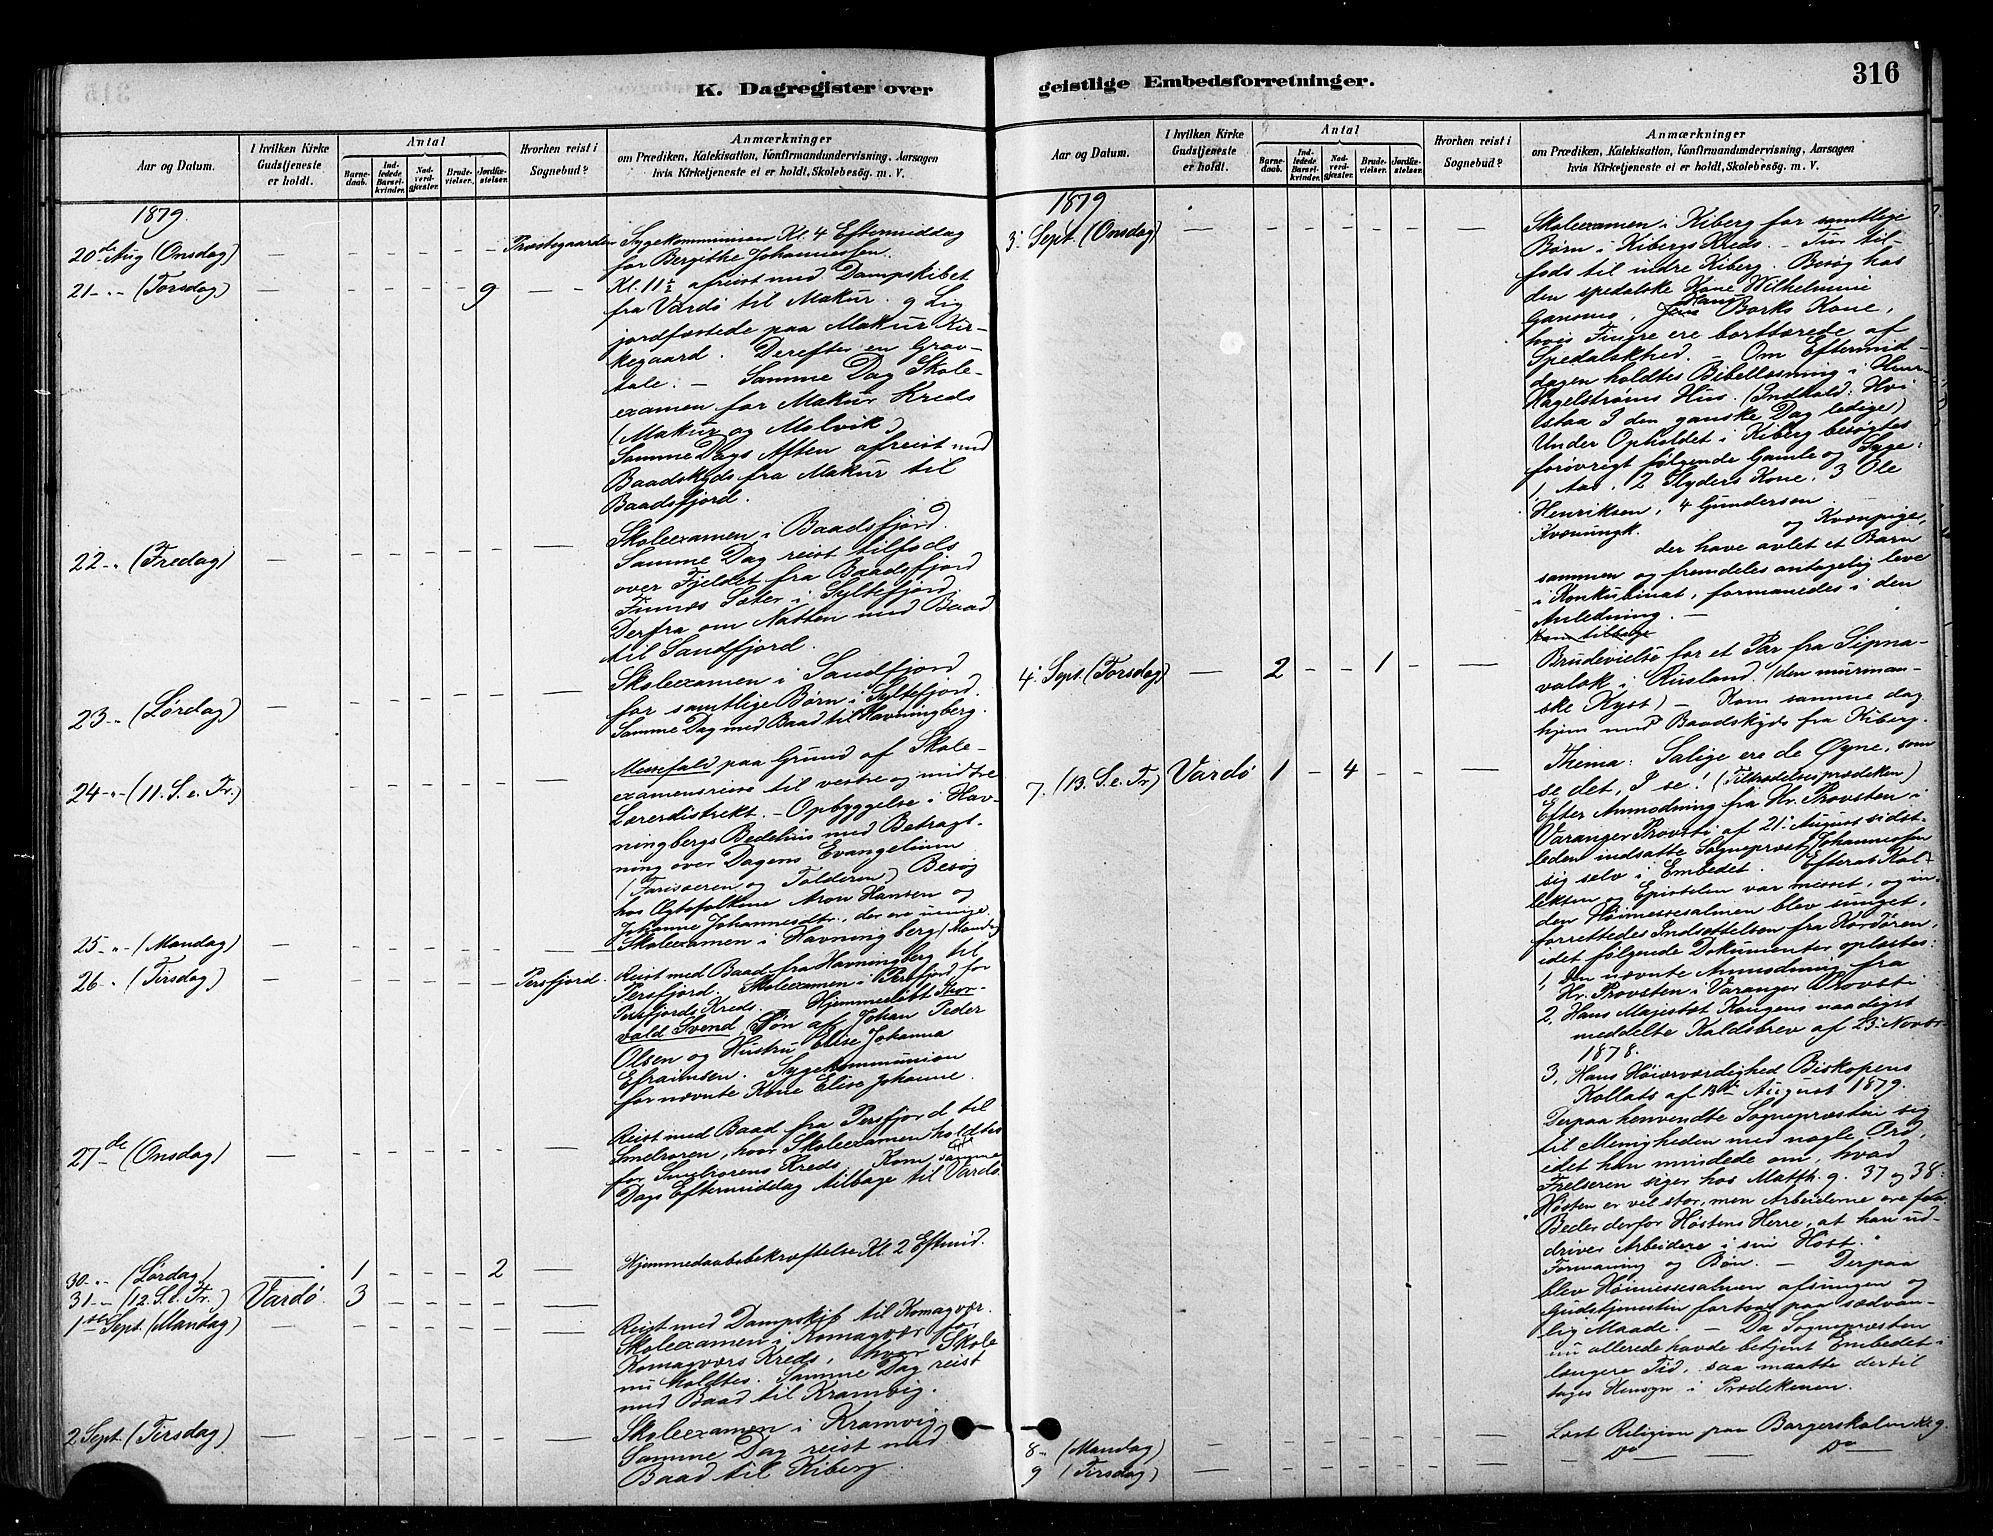 K. Dagregister over
Aar og Datum.
I hvilken Kirke
Gudstjeneste
er holdt.
Antal
Barne-
daab.
Ind-
ledede
Barsel-
kvinder.
Nad-
verd-
gjæster.
Brude-
vielser.
Jordfæ-
stelser.
Hvorhen reist i
Sognebud?
Anmærkninger
om Prædiken, Katekisation, Konfirmandundervisning, Aarsagen
hvis Kirketjeneste ei er holdt, Skolebesøg. m. V.
1879.
20de Aug (Onsdag) — – – – – – Præstegaarden
Sygekommunion Kl. 4 Eftermiddag
for Bergithe Johannessen.
21 - " - (Torsdag) — – – – – 9 —
Kl. 11½ afreist med Dampskibet
fra Vardø til Makur. 9 Lig
jordfæstede paa Makur Kir-
kegaard. Derefter en Grav-
tale. – Samme Dag Skole-
examen for Makur Kreds
(Makur og Molvik)
Samme Dags Aften afreist med
Baadskyds fra Makur til
Baadsfjord.
22 - " (Fredag) — – – – – – —
Skoleexamen i Baadsfjord.
Samme Dag reist tilfods
over Fjeldet fra Baadsfjord
Finnes Sæter i Syltefjord
Derfra om Natten med Baad
til Sandfjord.
23 - " (Lørdag) — – – – – – —
Skoleexamen i Sandfjord
for samtlige Børn i Syltefjord.
Samme Dag med Baad til Havningberg.
24 - " - (11. S. e. Tr.) — – – – – – —
Messefald paa Grund af Skole-
examensreise til vestre og midtre
Lærerdistrikt. – Opbyggelse i Hav-
ningbergs Bedehus med Betragt-
ning over Dagens Evangelium
(Farisæeren og Tolderen) Besøg
hos Ægtefolkene Aron Hansen og
Johanne Johannesdtr., der ere uenige.
25 - " - (Mandag) — – – – – – —
Skoleexamen i Havningberg (Mandag)
26 - " (Tirsdag) — – – – – – Persfjord.
Reist med Baad fra Havningberg til
Persfjord. Skoleexamen i Persfjord for
Persfjords Kreds. Hjemmedøbt Thor-
vald Svend, Søn af Johan Peder
Olsen og Hustru Elise Johanna
Efraimsen. Sygekommunion
for nævnte Kone Elise Johanne.
27de (Onsdag) — – – – – – —
Reist med Baad fra Persfjord til
Smelroren, hvor Skoleexamen holdtes
for Smelrorens Kreds. Kom samme
Dags Eftermiddag tilbage til Vardø.
30 - " - (Lørdag) — 1 – – – 2 —
Hjemmedaabsbekræftelse Kl. 2 Eftmid.
31 - " - (12. S. e. Tr.) Vardø. 3 – – – – —
1ste Sept. (Mandag) — – – – – – —
Reist med Dampskib til Komagvær.
Skoleexamen i Komagvær for
Komagværs Kreds, hvor Skole
nu holdtes. Samme Dag reist
med Baad til Kramvig.
2 Sept. (Tirsdag) — – – – – – —
Skoleexamen i Kramvig.
Samme Dag reist med
Baad til Kiberg.
geistlige Embedsforretninger.
316
Aar og Datum.
I hvilken Kirke
Gudstjeneste
er holdt.
Antal
Barne-
daab.
Ind-
ledede
Barsel-
kvinder.
Nad-
verd-
gjæster.
Brude-
vielser.
Jordfæ-
stelser.
Hvorhen reist i
Sognebud?
Anmærkninger
om Prædiken, Katekisation, Konfirmandundervisning, Aarsagen
hvis Kirketjeneste ei er holdt, Skolebesøg. m. V.
1879
3. Sept. (Onsdag) — – – – – – —
Skoleexamen i Kiberg for samtlige
Børn i Kibergs Kreds. – Tur til-
fods til indre Kiberg. Besøg hos
den spedalske Kone Wilhelmine
Hans Borks Kone,
hvis Fingre ere borttærede af
Spedalskhed. – Om Eftermid-
dagen holdtes Bibellæsning i
Hagelstrøms Hus. (Indhold: Hvi
staa I den ganske Dag ledige)
Under Opholdet i Kiberg besøgtes
forøvrigt følgende Gamle og Syge:
1, Aas. 2 Flyders Kone. 3 Ole
Henriksen, 4 Gundersen.
og Kvænpige,
der have avlet et Barn
sammen og fremdeles antagelig leve
i Konkubinat, formanedes i den
Anledning. —
kom tilbage
4. Sept. (Torsdag) — 2 – – 1 – —
Brudevielse for et Par fra Sipna-
valok i Rusland. (den murman-
ske Kyst) – Kom samme dag
hjem med Baadskyds fra Kiberg.
7. (13. S. e. Tr) Vardø 1 – 4 – – —
Thema: Salige ere de Øyne, som
se det, I se! (Tiltrædelsesprædiken)
Efter Anmodning fra Hr. Provsten i
Varanger Provsti af 21. August sidst-
leden indsatte Sognepræst Johannessen
sig selv i Embedet. Efterat Kol-
lekten og Epistelen var messet, og in-
den Høimessesalmen blev sunget,
forrettedes Indsættelsen fra Kordøren,
idet følgende Dokumenter oplæstes:
1, Den nævnte Anmodning fra
Hr. Provsten i Varanger Provsti
2, Hans Majestæt Kongens naadigst
meddelte Kaldsbrev af 23. Novbr
1878.
3, Hans Høiærværdighed Biskopens
Kollats af 13de August 1879.
Derpaa henvendte Sognepræsten sig
til Menigheden med nogle Ord,
idet han mindede om, hvad
Frelseren siger hos Matth. 9. 37 og 38:
"Høsten er vel stor, men Arbeiderne ere faa
Beder derfor Høstens Herre, at han ud-
driver Arbeidere i sin Høst."
Formaning og Bøn. — Derpaa
blev Høimessesalmen afsungen og
Gudstjenesten fortsat paa sædvan-
lig Maade. — Da Sognepræsten
nu allerede havde betjent Embedet i
længere Tid, saa maatte dertil
tages Hensyn i Prædikenen.
8 - (Mandag) — – – – – – —
Læst Religion paa Borgerskolen Kl. 9.
9 (Tirsdag) — – – – – – —
Do — Do —